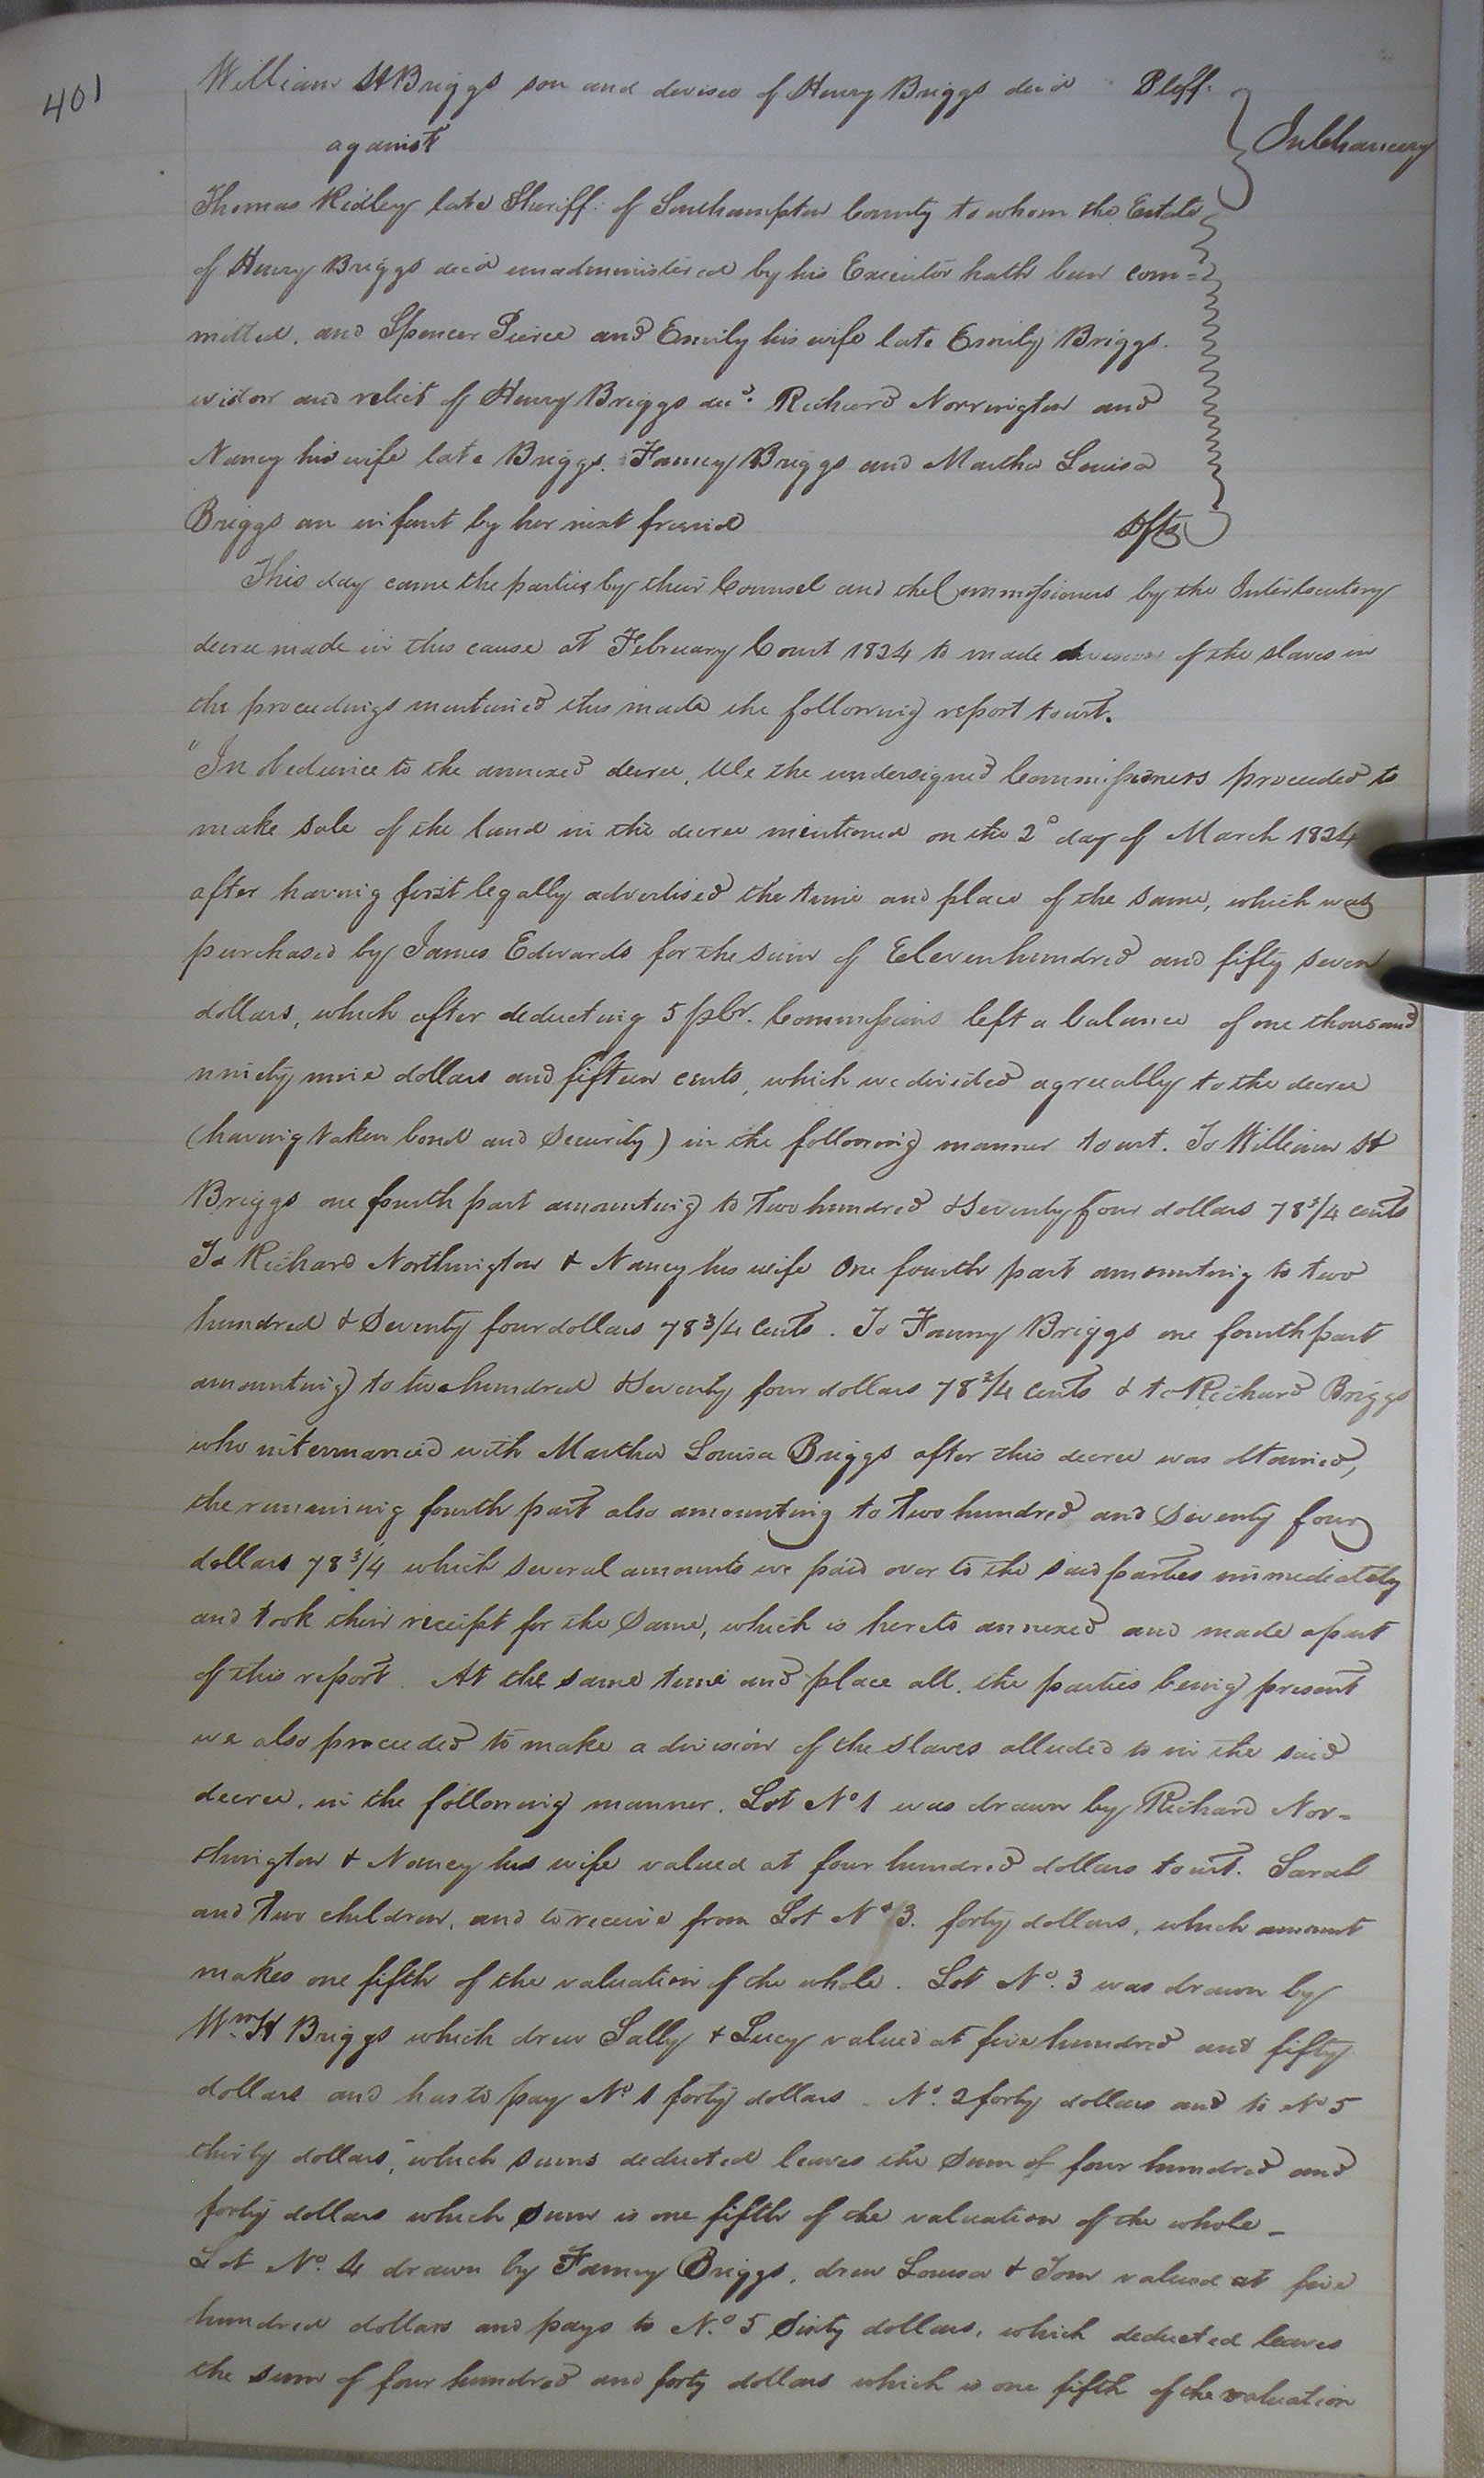 401
William H Briggs son and devisee of Henry Briggs decd Plff.
against
In Chancery
Thomas Ridley late Sheriff of Southampton County to whom the Estate
of Henry Briggs decd unadministered by his Executor hath been com=
mitted, and Spencer Pierce and Emily his wife late Emily Briggs.
widow and relict of Henry Briggs decd. Richard Norrington and
Nancy his wife late Briggs. Fanny Briggs and Martha Louisa
Briggs an infant by her next friend Dfts
This day came the parties by their Counsel and the Commissioners by the Interlocutory
decree made in this cause at February Court 1824 to made division of the slaves in
the proceedings mentioned this made the following report towit.
"In obedience to the annexed decree, We the undersigned Commissioners proceeded to
make sale of the land in the decree mentioned on the 2d day of March 1824
after having first legally advertised the time and place of the same, which was
purchased by James Edwards for the sum of Elevenhundred and fifty seven
dollars, which after deducting 5 pCr. Commissions left a balance of one thousand
ninety nine dollars and fifteen cents, which we divided agreeably to the decree
(having taken bond and Security) in the following manner towit. To William H
Briggs one fourth part amounting to Two hundred & Seventy four dollars 78 3/4 cents
To Richard Northington & Nancy his wife One fourth part amounting to two
hundred & Seventy four dollars 78 3/4 Cents. To Fanny Briggs one fourth part
amounting to two hundred & Seventy four dollars 78 3/4 Cents & to Richard Briggs
who intermarried with Martha Louisa Briggs after this decree was obtained,
the remaining fourth part also amounting to Two hundred and Seventy four
dollars 78 3/4 which several amounts we paid over to the said parties immediately
and took their receipt for the Same, which is hereto annexed and made apart
of this report. At the same time and place all the parties being present
we also proceeded to make a division of the slaves alluded to in the said
decree, in the following manner. Lot No 1 was drawn by Richard Nor=
thington & Nancy his wife valued at four hundred dollars towit. Sarah
and Two children, and to receive from Lot No 3. forty dollars, which amount
makes one fifth of the valuation of the whole. Lot No. 3 was drawn by
Wm. H Briggs which drew Sally & Lucy valued at five hundred and fifty
dollars and has to pay No 1 forty dollars - No. 2 forty dollars and to No 5
thirty dollars, which sums deducted leaves the Sum of four hundred and
forty dollars which Sum is one fifth of the valuation of the whole -
Lot No. 4 drawn by Fanny Briggs, drew Louisa & Tom valued at five
hundred dollars and pays to No. 5 Sixty dollars, which deducted leaves
the sum of four hundred and forty dollars which is one fifth of the valuation